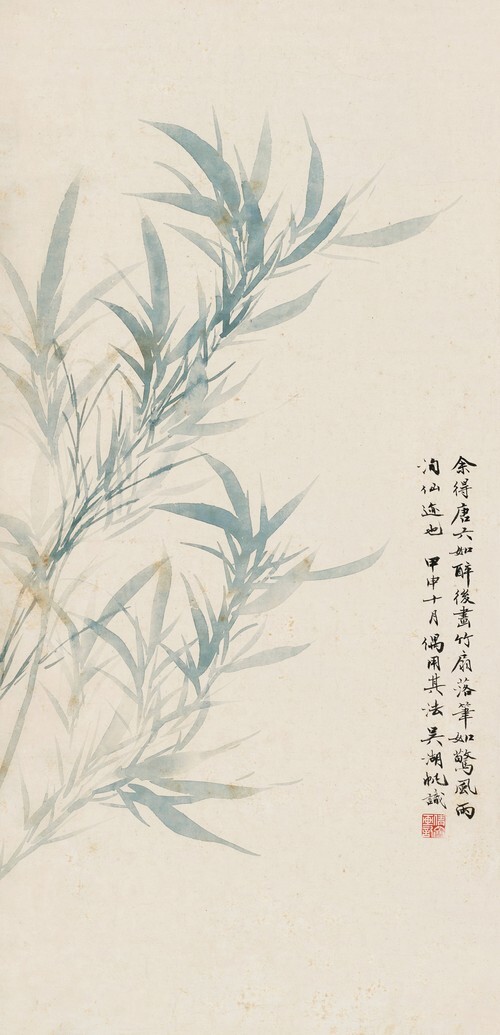 余得唐六如醉後畫竹扇落筆如驚風雨
洵仙迹也甲申十月偶用其法吳湖帆識